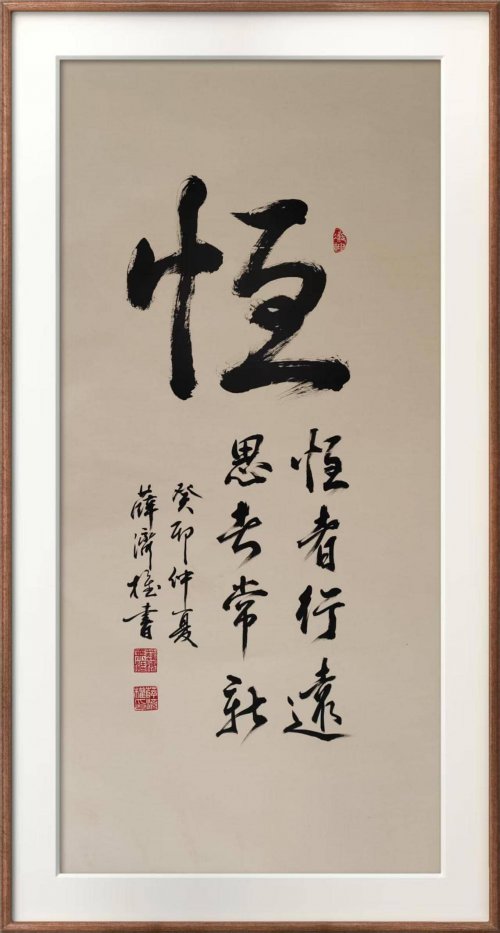 恒
恒者行遠
思者常新
癸卯仲夏
薛濟權書